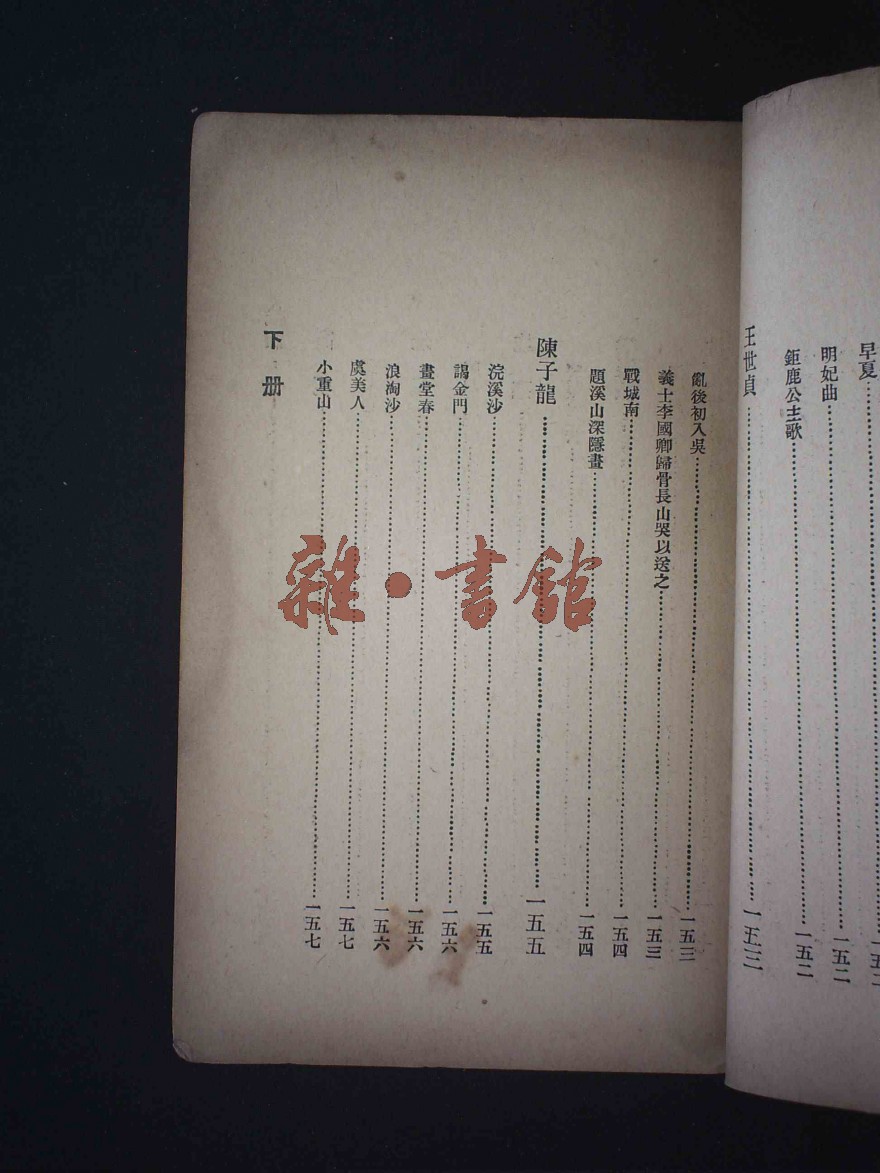 早夏
明妃曲……一五二
鉅鹿公主歌……一五二
王世貞……一五三
亂後初入吳……一五三
義士李國卿歸骨長山哭以送之……一五三
戰城南……一五四
題溪山深隱畫……一五四
陳子龍……一五五
浣溪沙……一五五
謁金門……一五六
畫堂春……一五六
浪淘沙……一五六
虞美人……一五七
小重山……一五七
下册
雜·書館